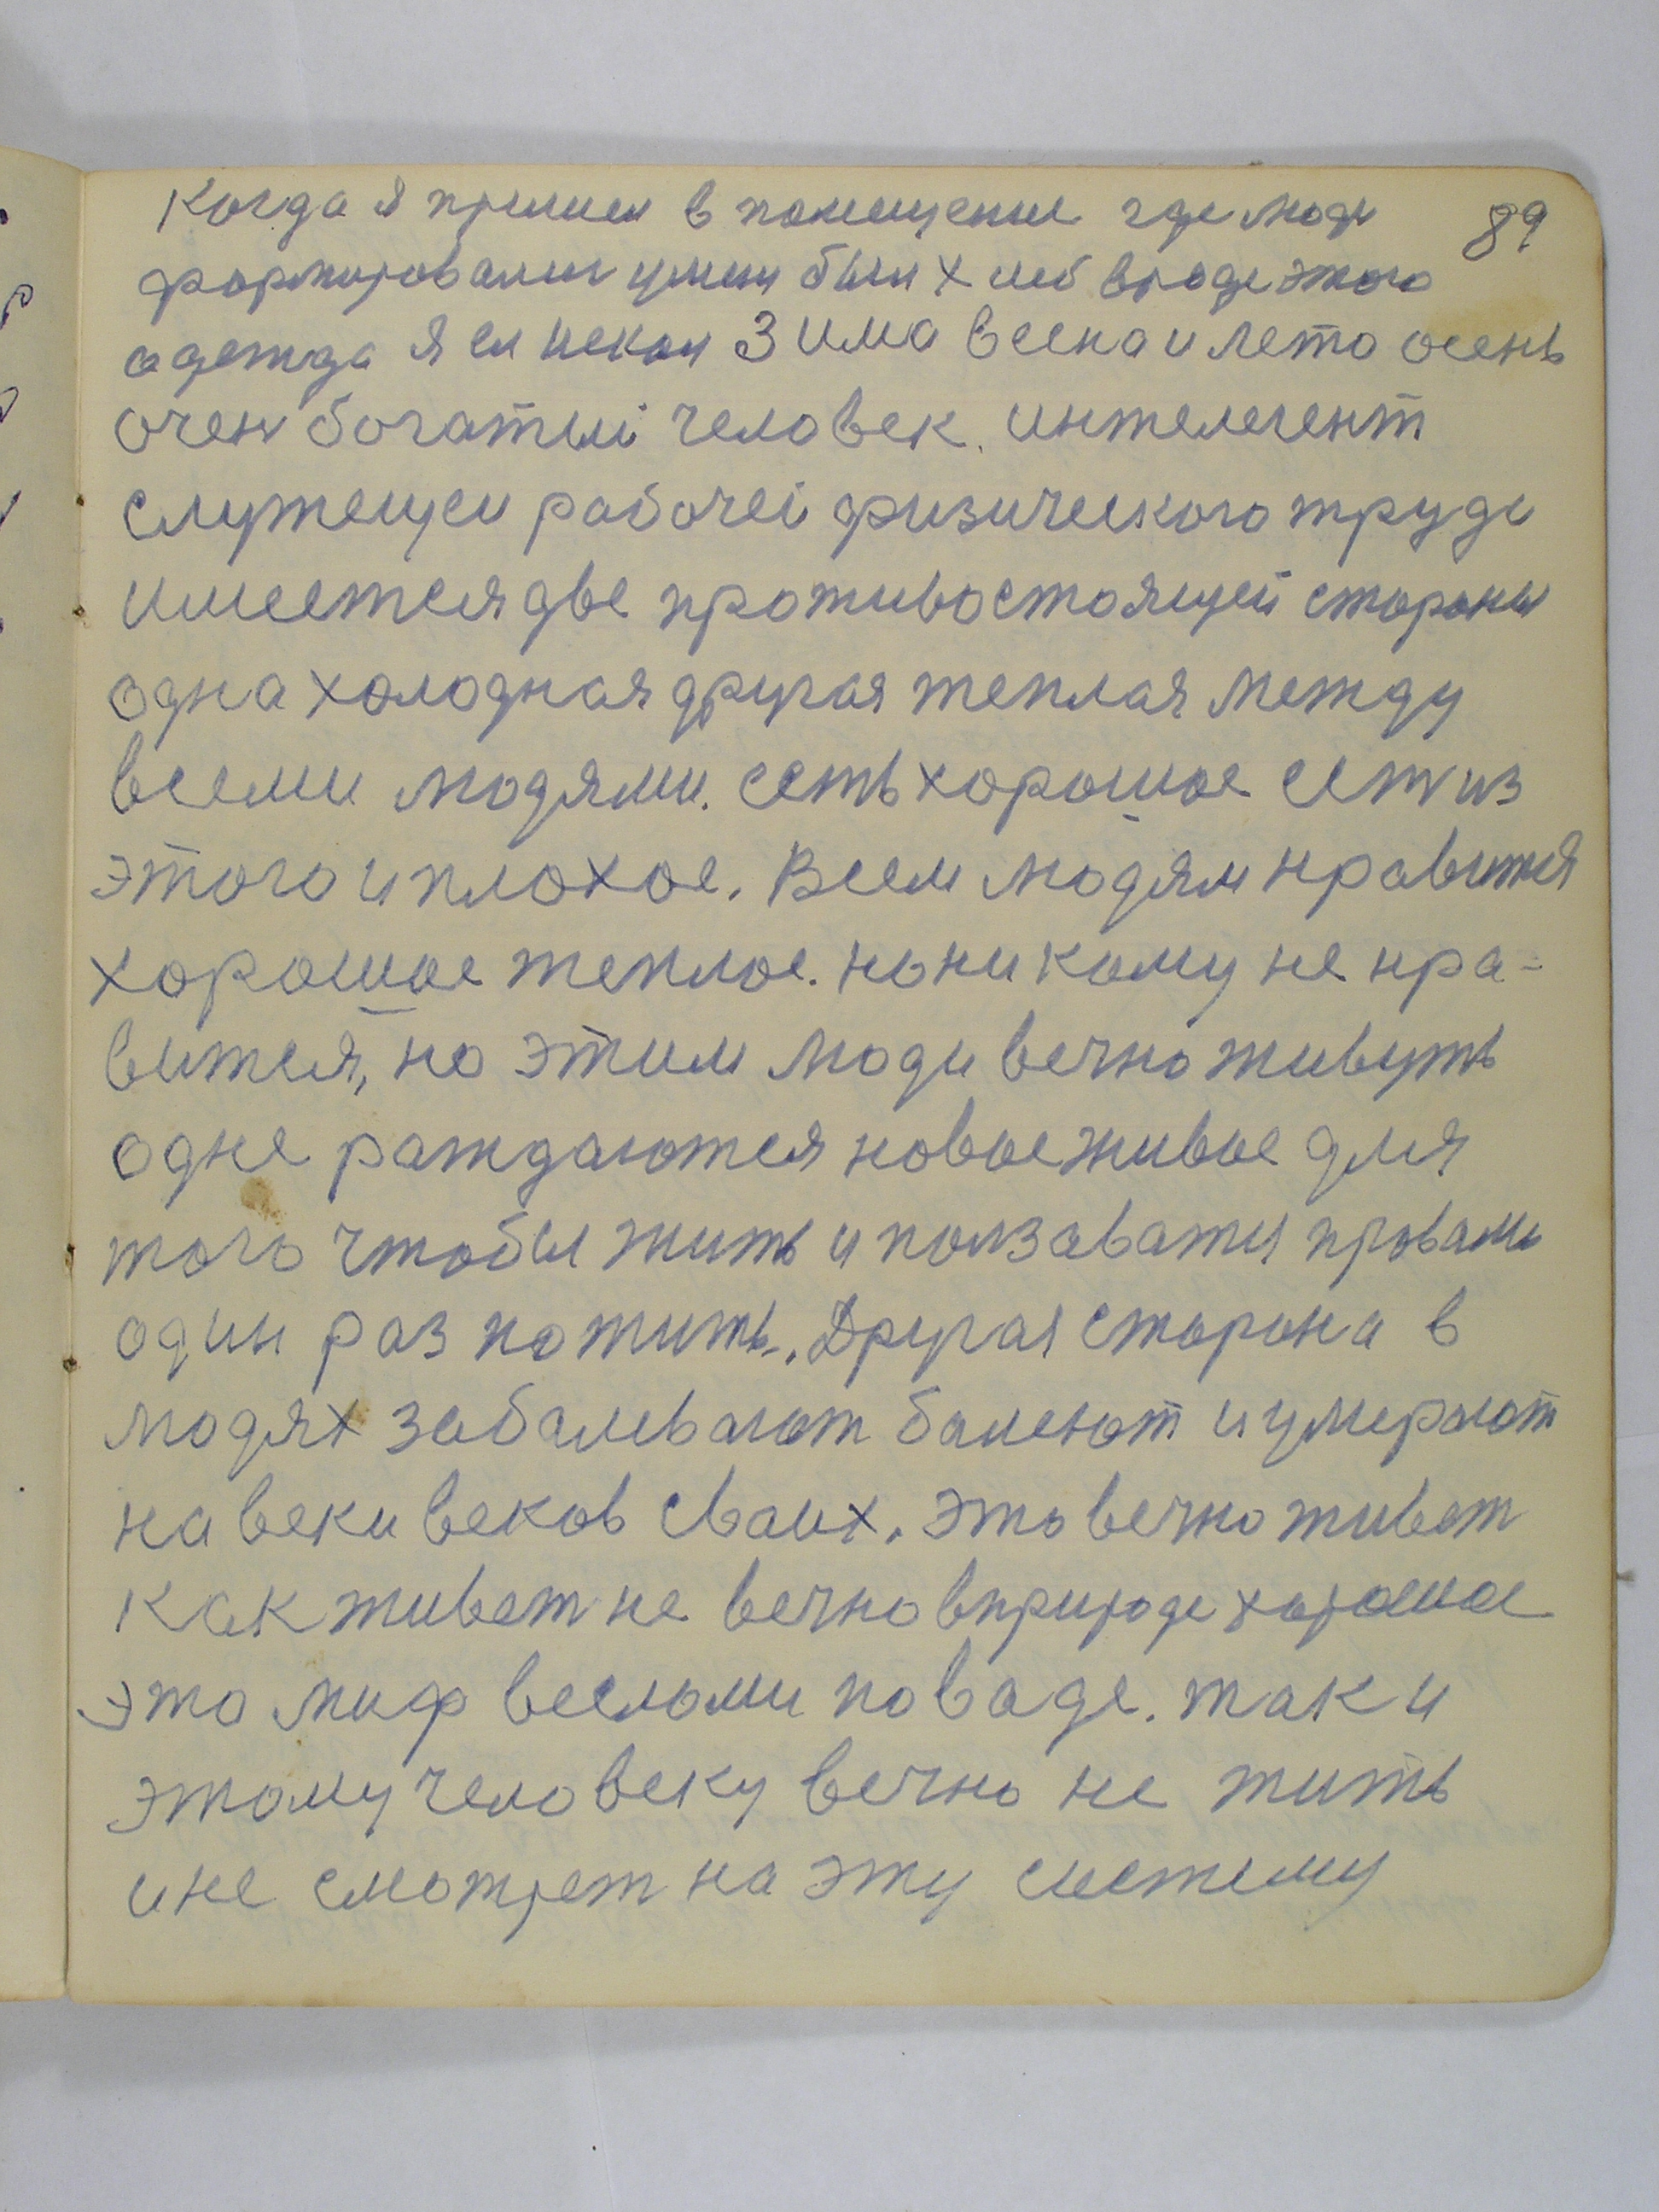 Когда я пришел в помещение где люди 89
формировались у них был хлеб вроде этого
одежда я ел Зима весна и лето осень
очен богатыи человек. интелегент
служещеи рабочеи физического труда
имеется две противостоящей стороны
одна холодная другая теплая между
всеми людями. есть хорошое ест из
этого и плохое. Всем людям нравится
хорошое теплое. но ни кому не нра-
вится, но этим люди вечно живуть
одне раждаются новые живые для
того чтобы жить и ползаватся правами
один раз пожить. Другая сторона в
людях забалевают балеют и умерают
на веки веков сваих. это вечно живет
как живет не вечно в природе хорошое
это миф веслами по ваде. так и
этому человеку вечно не жить
и не смотрет на эту систему